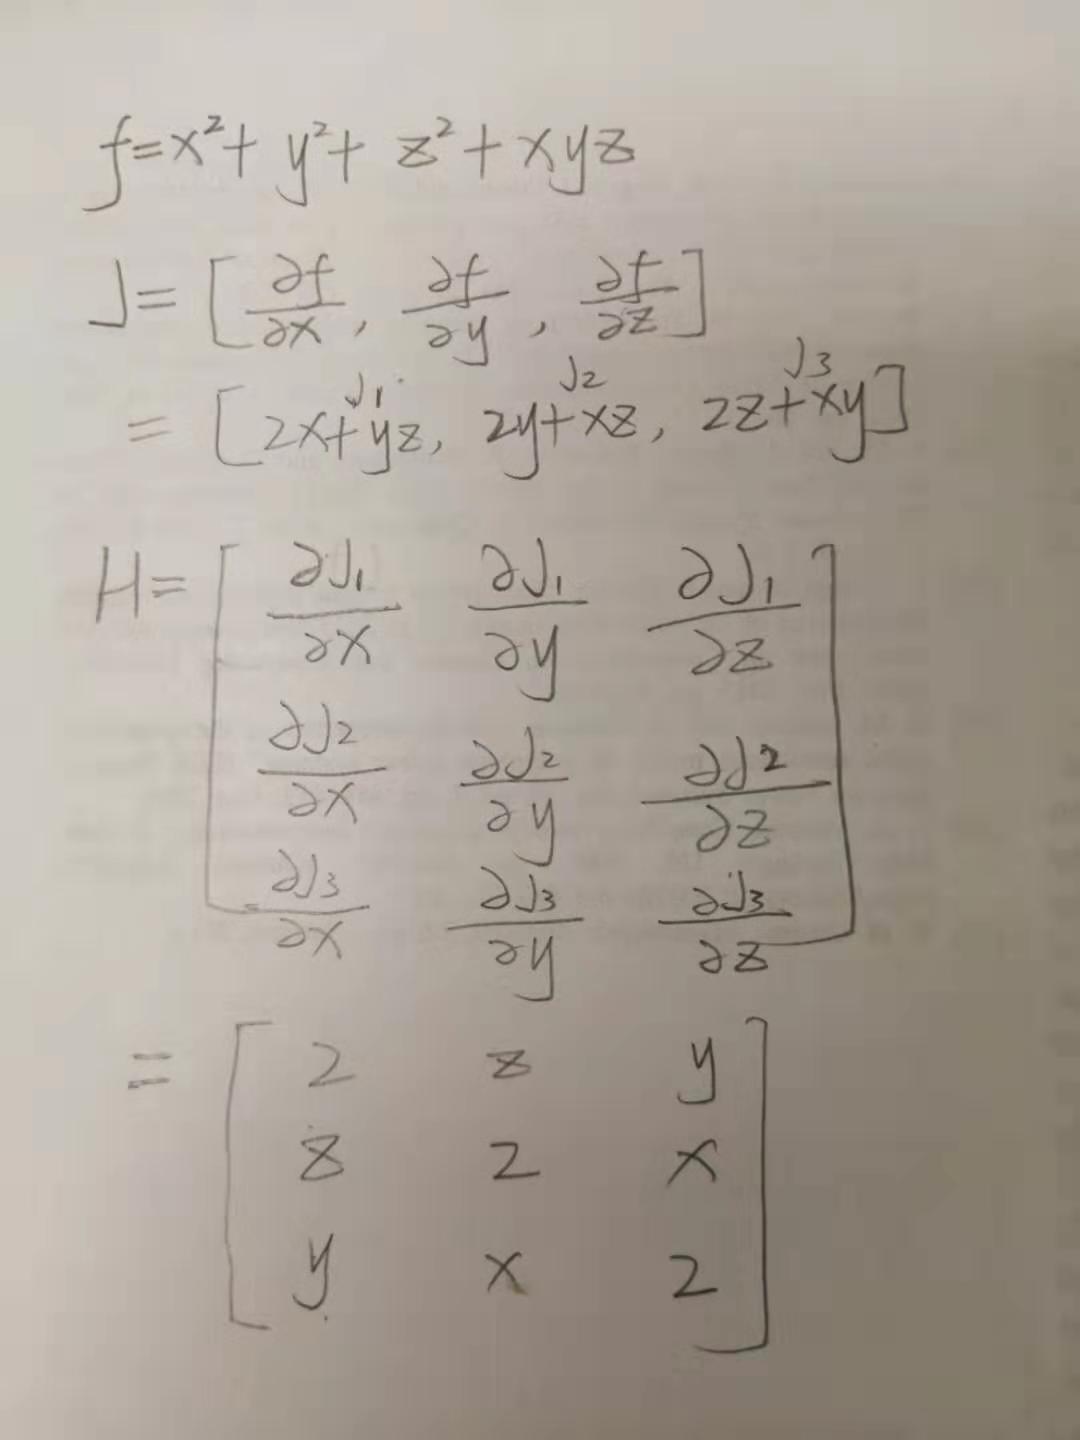 f=x²+ y²+ z²+xyz
J= [∂f/∂x, ∂f/∂y, ∂f/∂z]
J₁ J₂ J₃
= [2x+yz, 2y+xz, 2z+xy]
H= [∂J₁/∂x ∂J₁/∂y ∂J₁/∂z
∂J₂/∂x ∂J₂/∂y ∂J₂/∂z
∂J₃/∂x ∂J₃/∂y ∂J₃/∂z]
= [2 z y
z 2 x
y x 2]